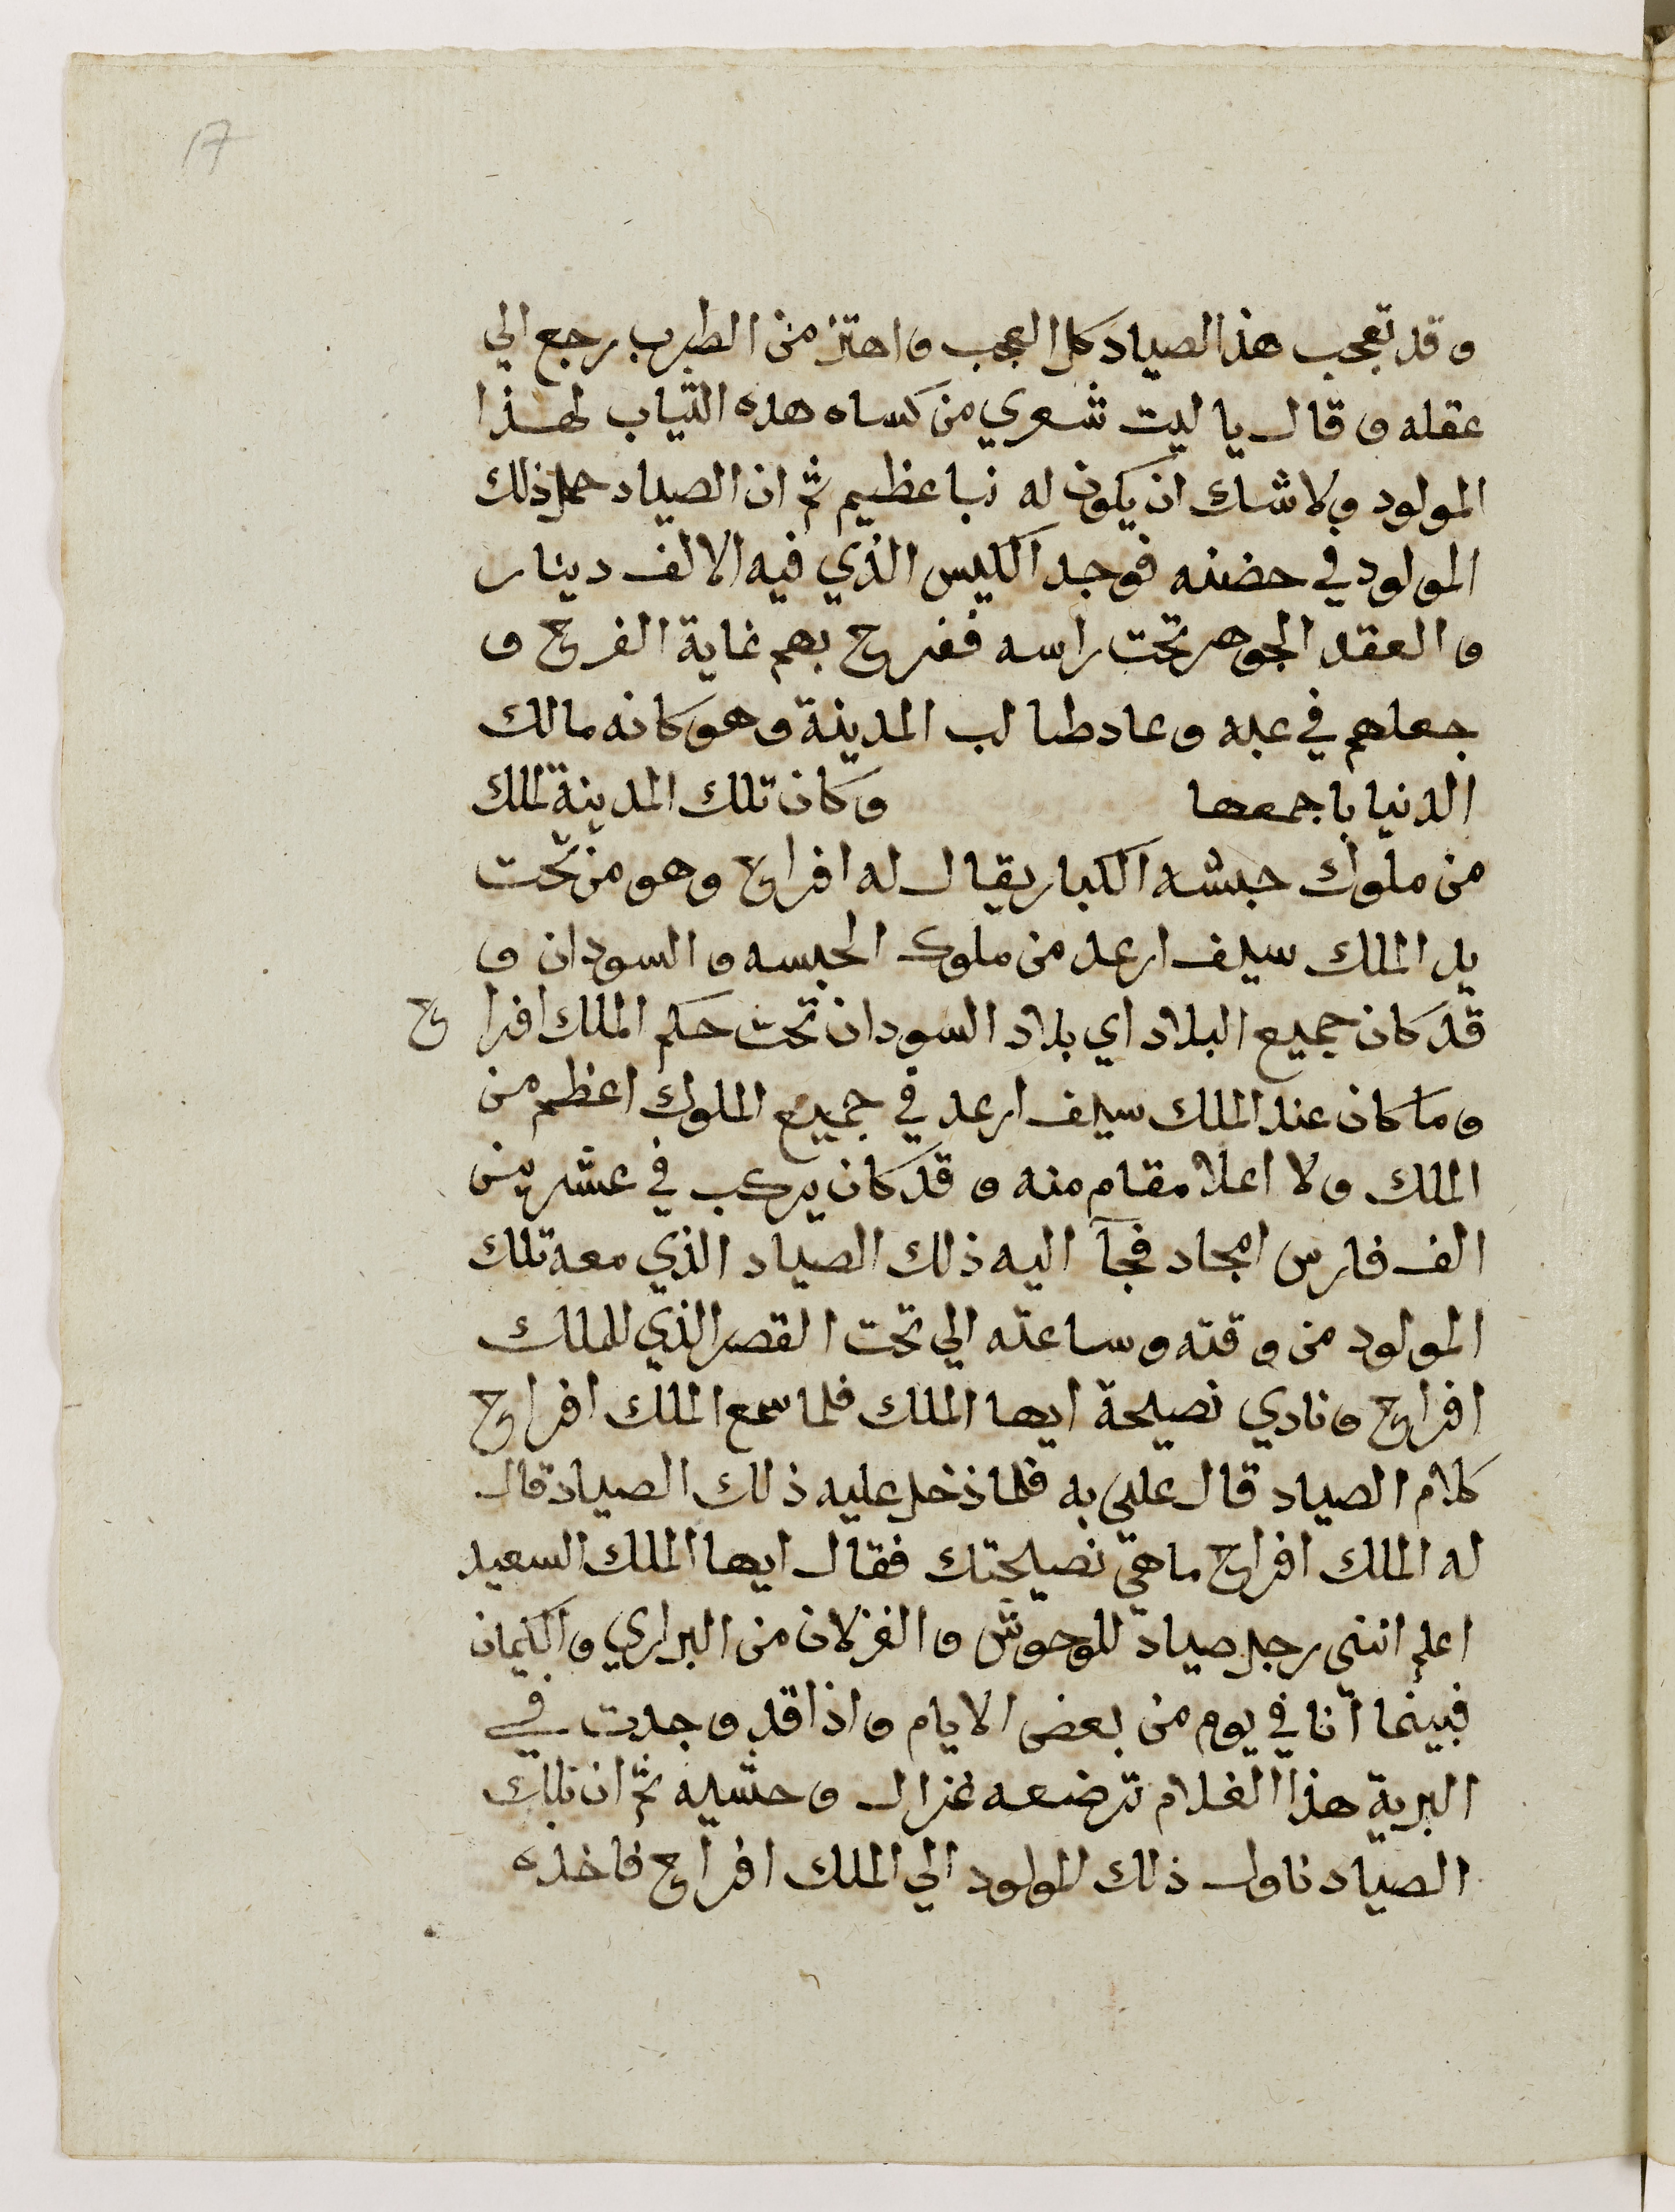 17
وقد تعجب هذا لصياد كل العجب واهتز من الطرب رجع الي
عقله وقال يا ليت شعري من كساه هده الثياب لهذا
المولود ولا شك ان يكون له نبا عظيم ثم ان الصياد حمل ذلك
المولود في حضنه فوجد الكيس الذي فيه الالف دينار
والعقد الجوهر تحت راسه ففرح بهم غاية الفرح و
جعلهم في عبه وعاد طالب المدينة وهو كانه مالك
الدنيا باجمعها وكان تلك المدينة لملك
من ملوك حبشه الكبار يقال له افراح وهو من تحت
يد الملك سيف ارعد من ملوك الحبسه والسودان و
قد كان جميع البلاد اي بلاد السودان تحت حكم الملك افراح
وما كان عند الملك سيف ارعد في جميع الملوك اعظم من
الملك ولا اعلا مقام منه وقد كان يركب في عشرين
الف فارس امجاد فجآ اليه ذلك الصياد الذي معه تلك
المولود من وقته وساعته الي تحت القصر الذي للملك
افراح ونادي نصيحة ايها الملك فلما سمع الملك افراح
كلام الصياد قال علي به فلما دخل عليه ذلك الصياد قال
له الملك افراح ما هي نصيحتك فقال ايها الملك السعيد
اعلم انني رجل صياد للوحوش والغزلان من البراري والكيمان
فبينما انا في يوم من بعض الايام واذا قد وجدت في
البرية هذا الغلام ترضعه غزال وحشيه ثم ان تلك
الصياد ناول ذلك المولود الي الملك افراح فاخذه